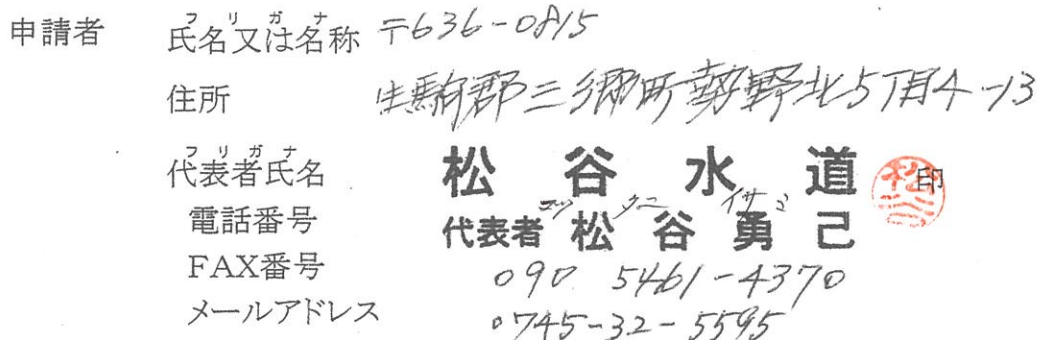 フリガナ
申請者 氏名又は名称 〒636-0815
住所 生駒郡三郷町勢野北5丁目4-13
フリガナ
代表者氏名 松谷水道 印
電話番号 代表者 松谷勇己
FAX番号 090 5461-4370
メールアドレス 0745-32-5595